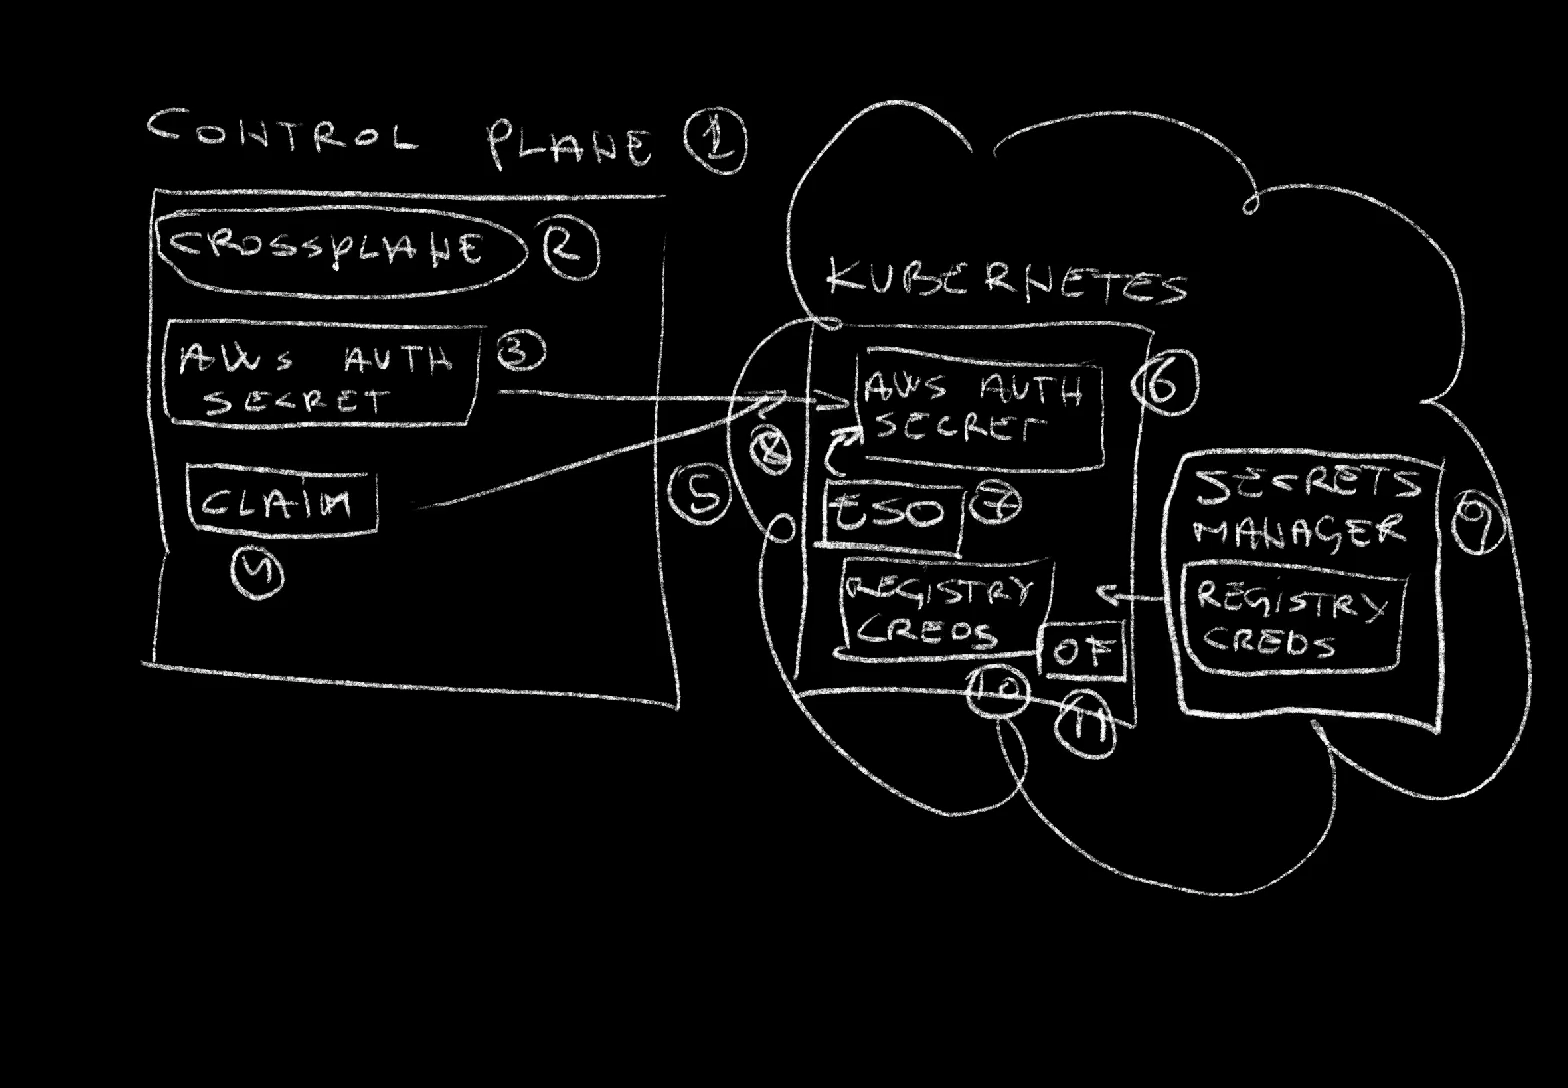 CONTROL PLANE 1
CROSSPLANE 2
AWS AUTH 3
SECRET
CLAIM
4
5
KUBERNETES
AWS AUTH 6
SECRET
8
ESO 7
REGISTRY
CREDS
OF
10
11
SECRETS
MANAGER 9
REGISTRY
CREDS